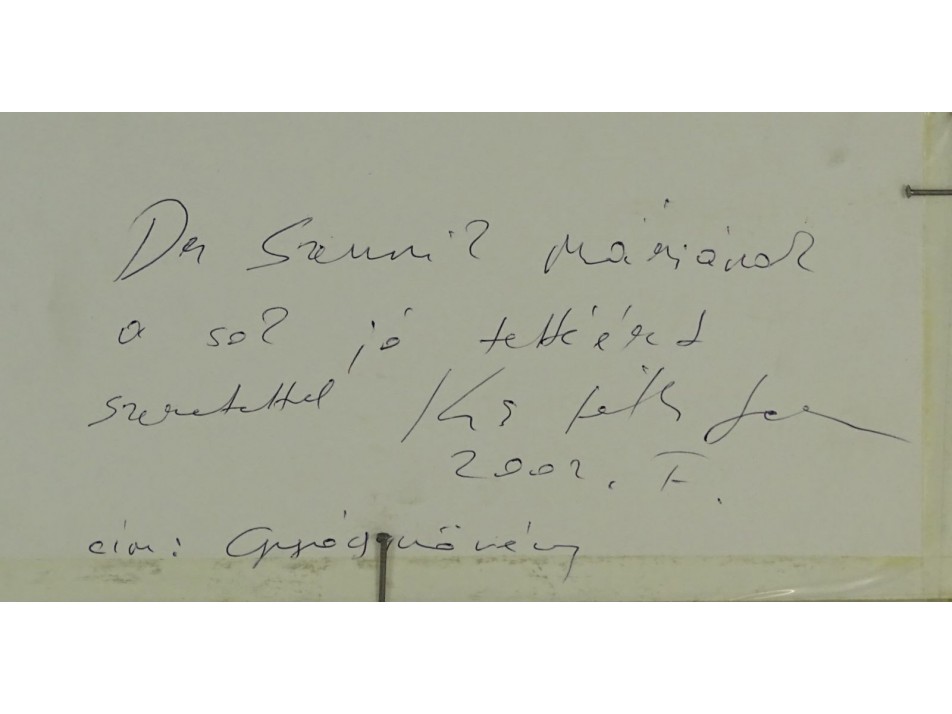 Dr Szemnik Máriának
a sok jó tettéért
szeretettel Kis Tóth
2002. I.
cím: Gyógynövény